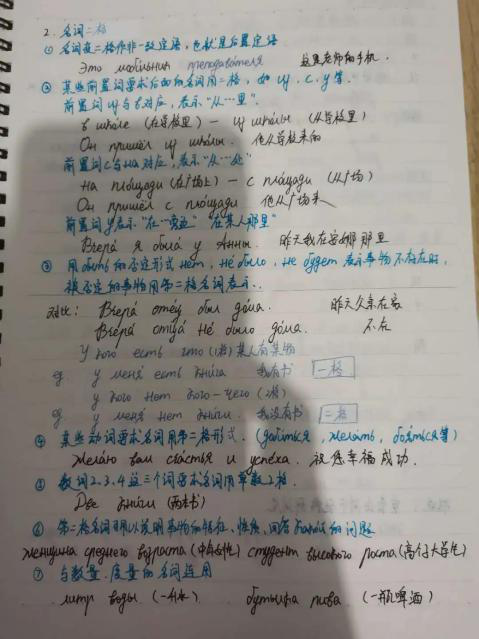 2. 名词二格
① 名词第二格作非一致定语，也就是后置定语
Это мобильник преподавателя 这是老师的手机.
② 某些前置词要求后面的名词用二格，如 из, с, у等.
前置词 из 与 в 对应，表示“从…里”.
в школе (在学校里) — из школы (从学校里)
Он пришёл из школы. 他从学校来的
前置词 с 与 на 对应，表示“从…处”
На площади (在广场上) — с площади (从广场)
Он пришёл с площади 他从广场来
前置词 у 表示“在…旁边” “在某人那里”
Вчера я была у Анны. 昨天我在安娜那里
③ 用 быть 的否定形式 нет, не было, не будет 表示事物不存在时,
被否定的事物用第二格名词表示.
对比: Вчера отец был дома. 昨天父亲在家
Вчера отца не было дома. 不在
У кого есть что (1格) 某人有某物
у меня есть книга 我有书 一格
у кого нет кого-чего (2格)
у меня нет книги. 我没有书 二格
④ 某些动词要求名词用第二格形式. (добиться, желать, бояться等)
Желаю вам счастья и успеха. 祝您幸福成功.
⑤ 数词 2.3.4 这三个词要求名词用单数2格.
Две книги (两本书)
⑥ 第二格名词可用以说明事物的特征、性质、回答 какой 的问题
женщина среднего возраста (中年女性) студент высокого роста (高个大学生)
⑦ 与数量.度量的名词连用
литр воды (一升水) бутылка пива. (一瓶啤酒)